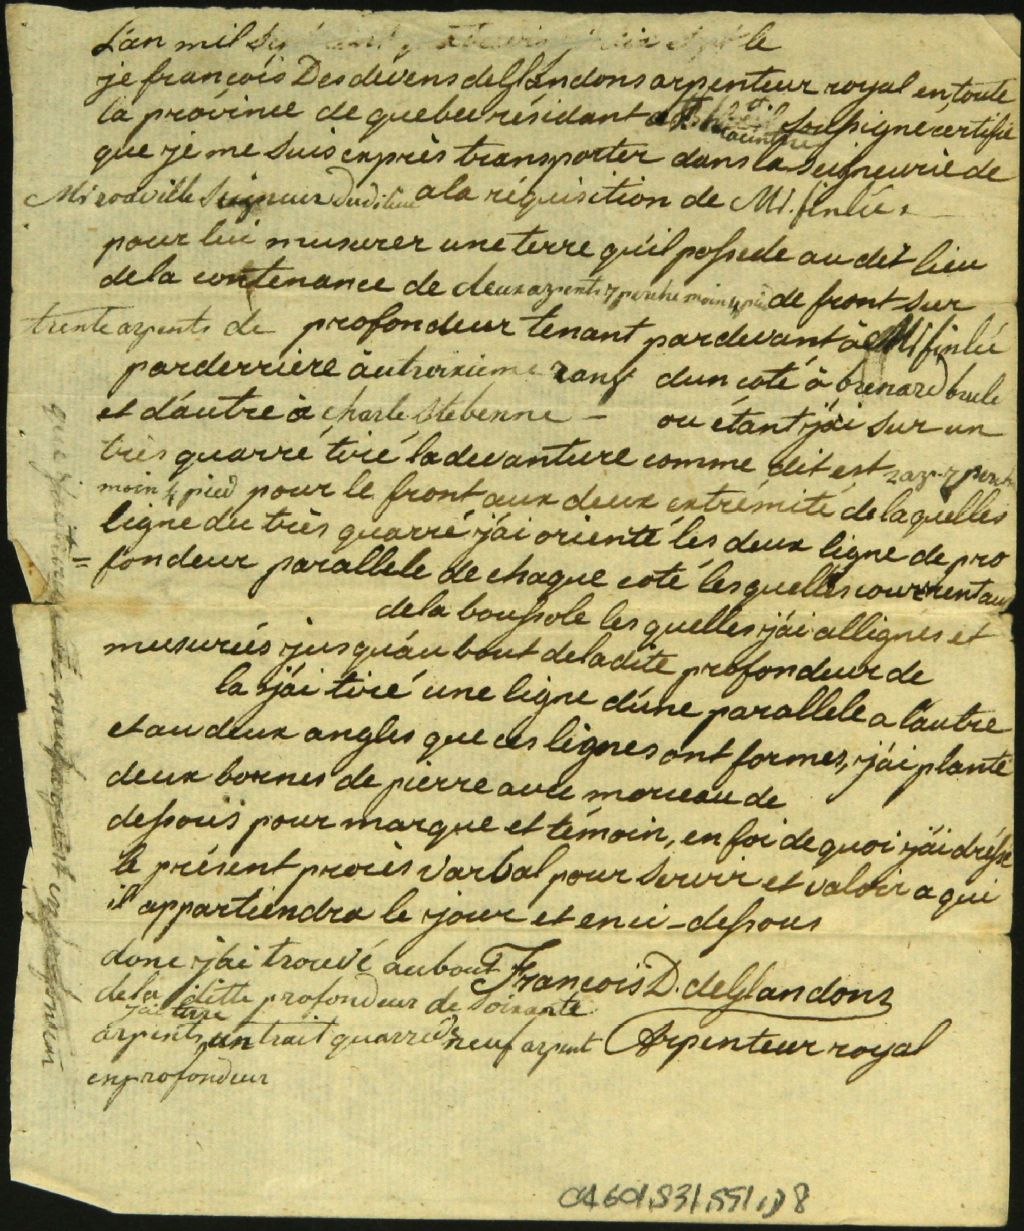 L'an mil le
je françois Desdevens deGlandons arpenteur royal en toute
la province de quebec résidant a soussigné certifie
que je me suis exprès transporter dans la seigneurie de
Mi rouville Seigneur dudit lieu a la réquisition de Mi. finlié
pour lui musurer une terre qu'il possede au det lieu
de la contenance de deux arpents 7 perche moin 4 pied de front sur
trente arpents de profondeur tenant pardevant à Mi finlié
parderriere àu troisieme rang dun coté à brenard brule
et d'autre à Charle Stebenne – ou étant j'ai sur un
très quarré tiré la devanture comme dit est 2 arp. 7 perche
moin 4 pied pour le front aux deux extrémité de laquelles
ligne du très quarré j'ai orienté les deux ligne de pro
fondeur parallele de chaque coté lesquelles courrent au
de la boussole les quelles j'ai allignés et
musuriés jusqu'au bout de ladite profondeur de
la j'ai tiré une ligne d'une parallele a l'autre
et au deux angles que ces lignes ont formes, j'ai planté
deux bornes de pierre avec morceau de
dessoüs pour marque et témoin, en foi de quoi j'ai drésse
le présent procès varbal pour servir et valoir a qui
il appartiendra le jour et en ci-dessous
donc j'ai trouvé au bout
de la ditte profondeur de soixante
j'ai tirre
arpents un trait quarré de neuf arpent
en profondeur
François D. deGlandons
Arpenteur royal
CA 601,S31,SS1,D8